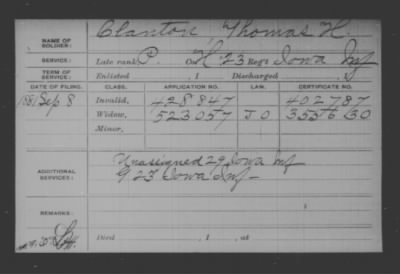 NAME OF SOLDIER: Clanton, Thomas H.
SERVICE: Late rank P. Co H 23 Reg't Iowa Inf
TERM OF SERVICE: Enlisted , 1 Discharged , 1
DATE OF FILING. CLASS. APPLICATION NO. LAW. CERTIFICATE NO.
1881 Sep 8 Invalid, 428847 402787
Widow, 523057 J O
Minor,
ADDITIONAL SERVICES: Unassigned 29 Iowa Inf
23 Iowa Inf
REMARKS:
Died , 1 , at